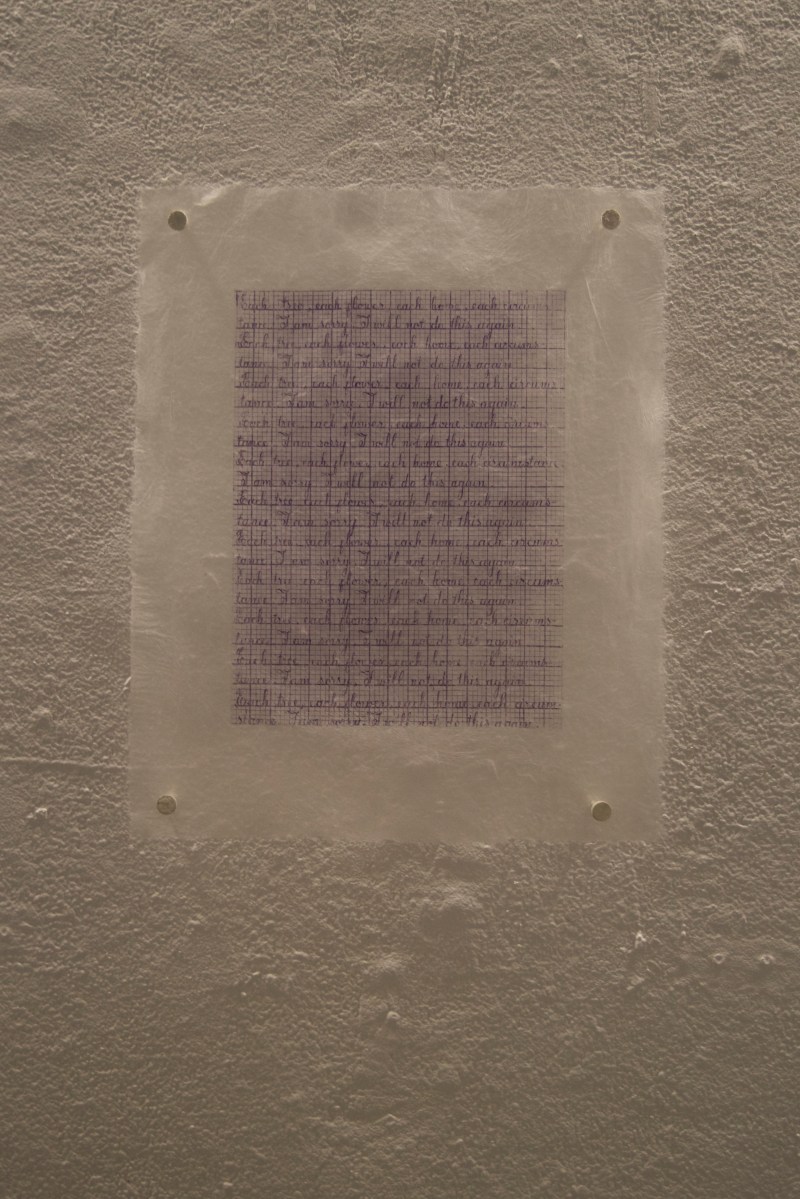 Each tree, each flower, each home, each circums-
tance. I am sorry. I will not do this again.
Each tree, each flower, each home, each circums-
tance. I am sorry. I will not do this again.
Each tree, each flower, each home, each circums-
tance. I am sorry. I will not do this again.
Each tree, each flower, each home, each circums-
tance. I am sorry. I will not do this again.
Each tree, each flower, each home, each circumstance.
I am sorry. I will not do this again.
Each tree, each flower, each home, each circums-
tance. I am sorry. I will not do this again.
Each tree, each flower, each home, each circums-
tance. I am sorry. I will not do this again.
Each tree, each flower, each home, each circums-
tance. I am sorry. I will not do this again.
Each tree, each flower, each home, each circums-
tance. I am sorry. I will not do this again.
Each tree, each flower, each home, each circums-
tance. I am sorry. I will not do this again.
Each tree, each flower, each home, each circum-
stance. I am sorry. I will not do this again.